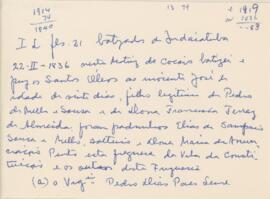 1914
74
1840
13 79
e 1919
ou 1836
83
I L fls. 21 batizados de Indaiatuba
22-II-1836 nesta Matriz de Cocais batizei e
pus os Santos Oleos ao inocente José de
idade de sinte dias, filho legitimo de Pedro
de Mello e Souza e de dona Francisca Ferraz
de Almeida; foram padrinhos Elias de Sampaio
Souza e Mello, solteiro e Dona Maria da Anun-
ciação Prado esta freguesa da Vila da Consti-
tuição e os outros desta Freguesia
(a) o Vagº Pedro Dias Paes Leme